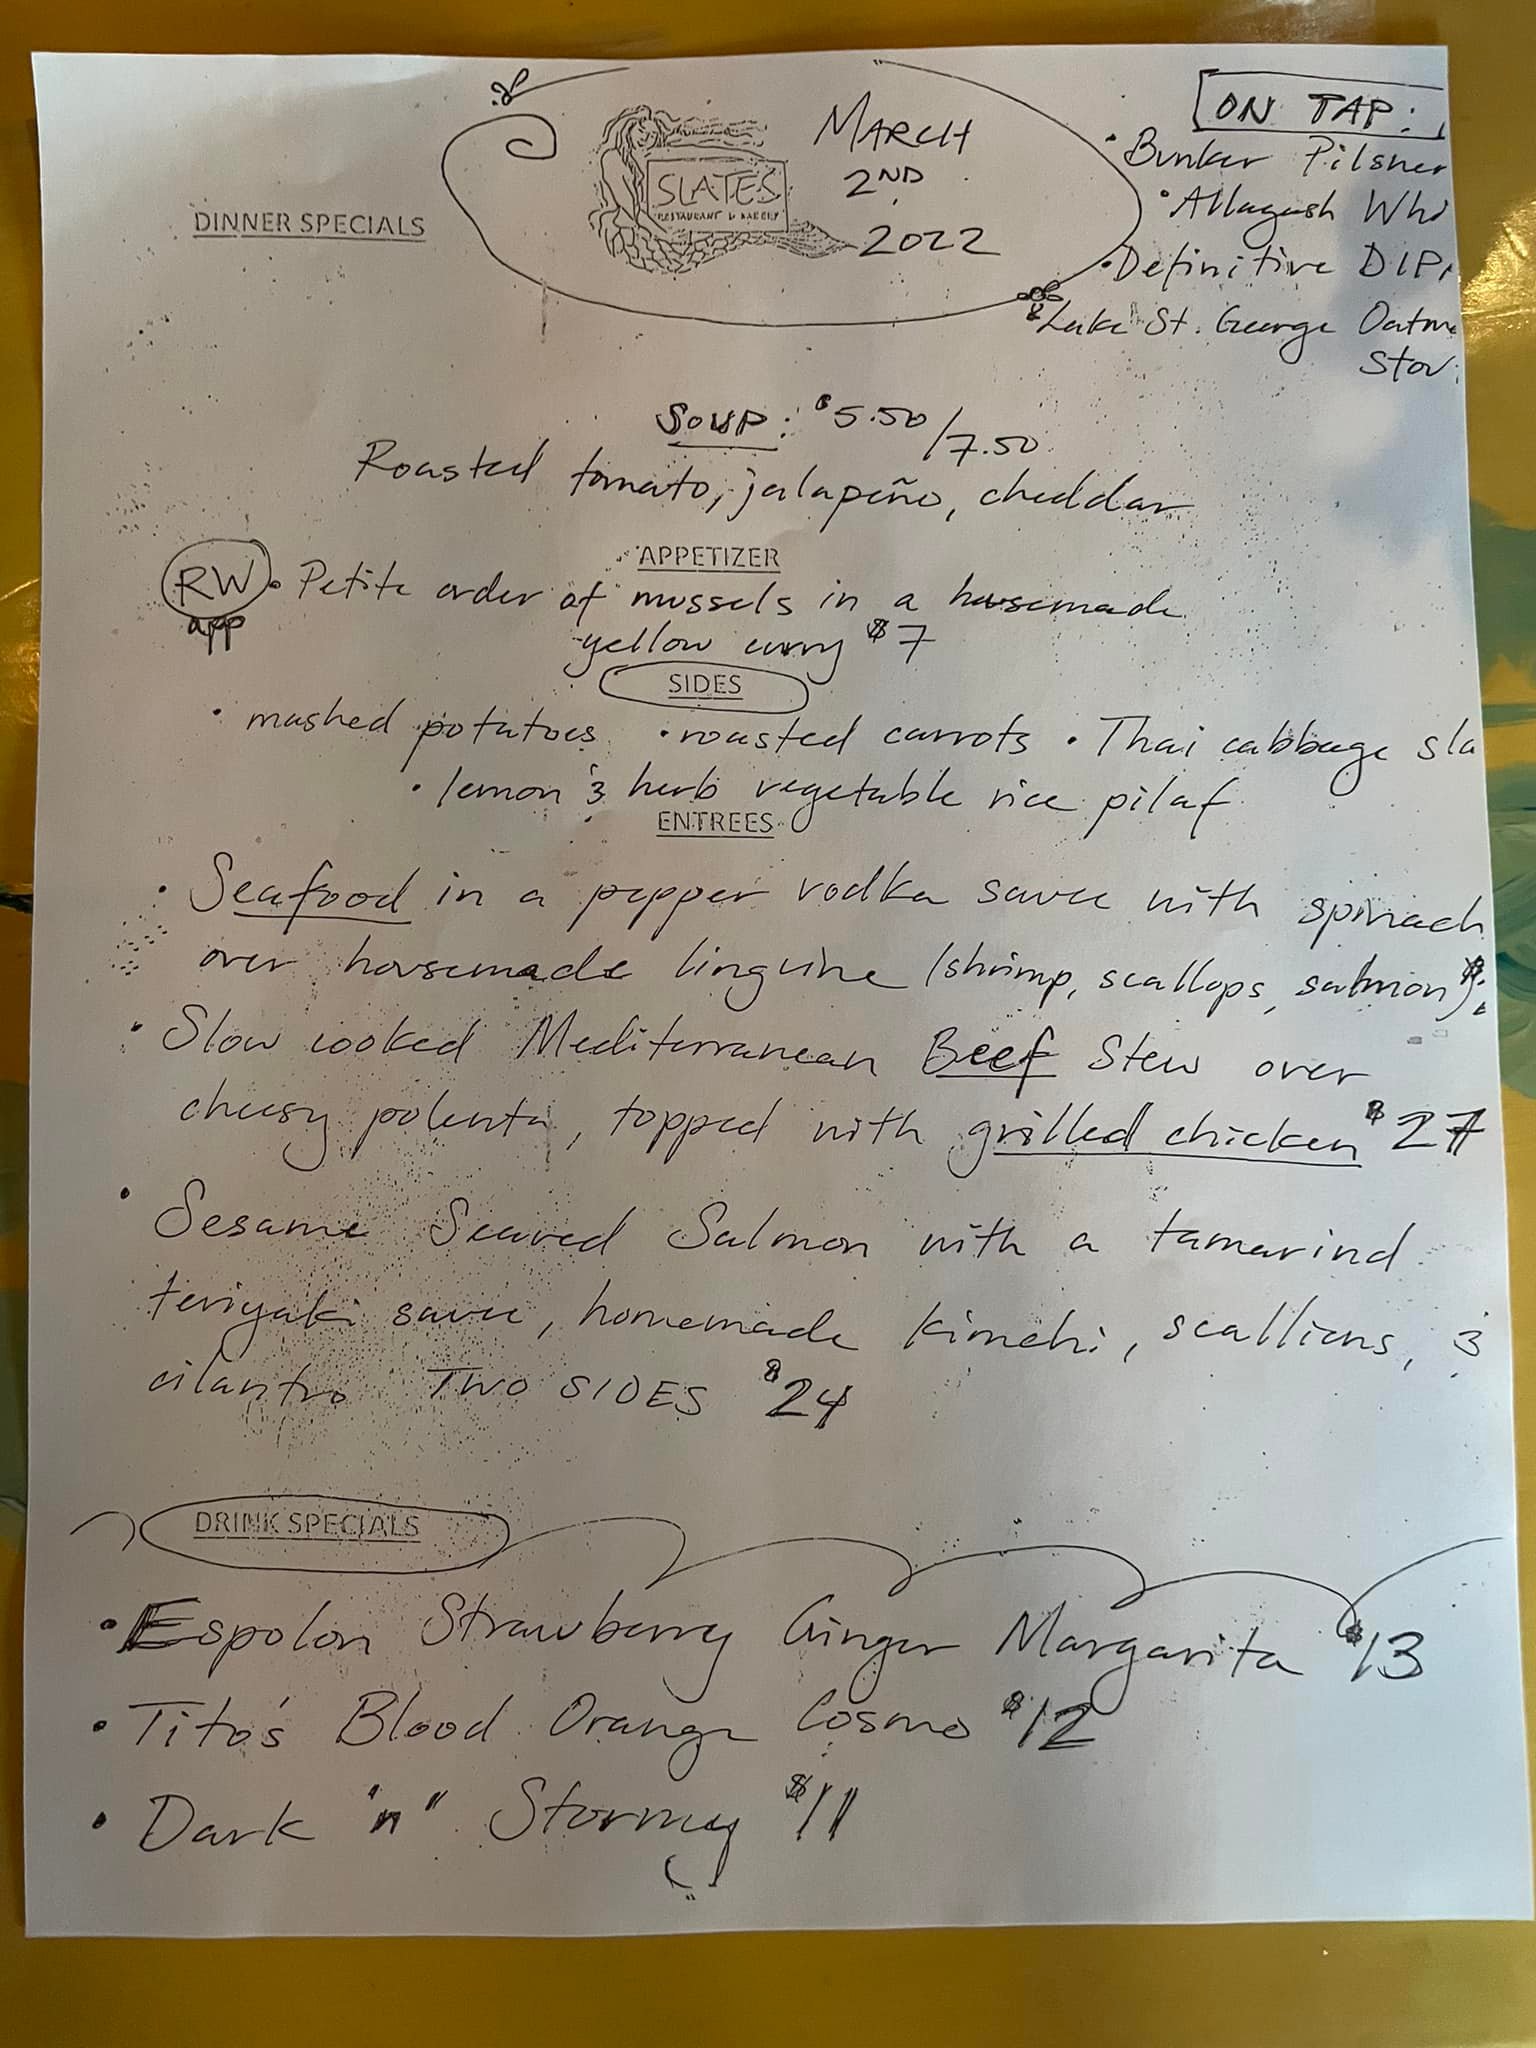 DINNER SPECIALS
SLATES
RESTAURANT & BAKERY
MARCH
2ND
2022
ON TAP:
• Bunker Pilsner
• Allagash Whi
• Definitive DIP
• Lake St. George Oatme
Stou
SOUP: $5.50/7.50
Roasted tomato, jalapeño, cheddar
APPETIZER
RW • Petite order of mussels in a housemade
app
yellow curry $7
SIDES
• mashed potatoes • roasted carrots • Thai cabbage sla
• lemon & herb vegetable rice pilaf
ENTREES
• Seafood in a pepper vodka sauce with spinach
over housemade linguine (shrimp, scallops, salmon) $
• Slow cooked Mediterranean Beef Stew over
cheesy polenta, topped with grilled chicken $27
• Sesame Seared Salmon with a tamarind
teriyaki sauce, homemade kimchi, scallions, &
cilantro TWO SIDES $24
DRINK SPECIALS
• Espolon Strawberry Ginger Margarita $13
• Tito's Blood Orange Cosmo $12
• Dark "n" Stormy $11